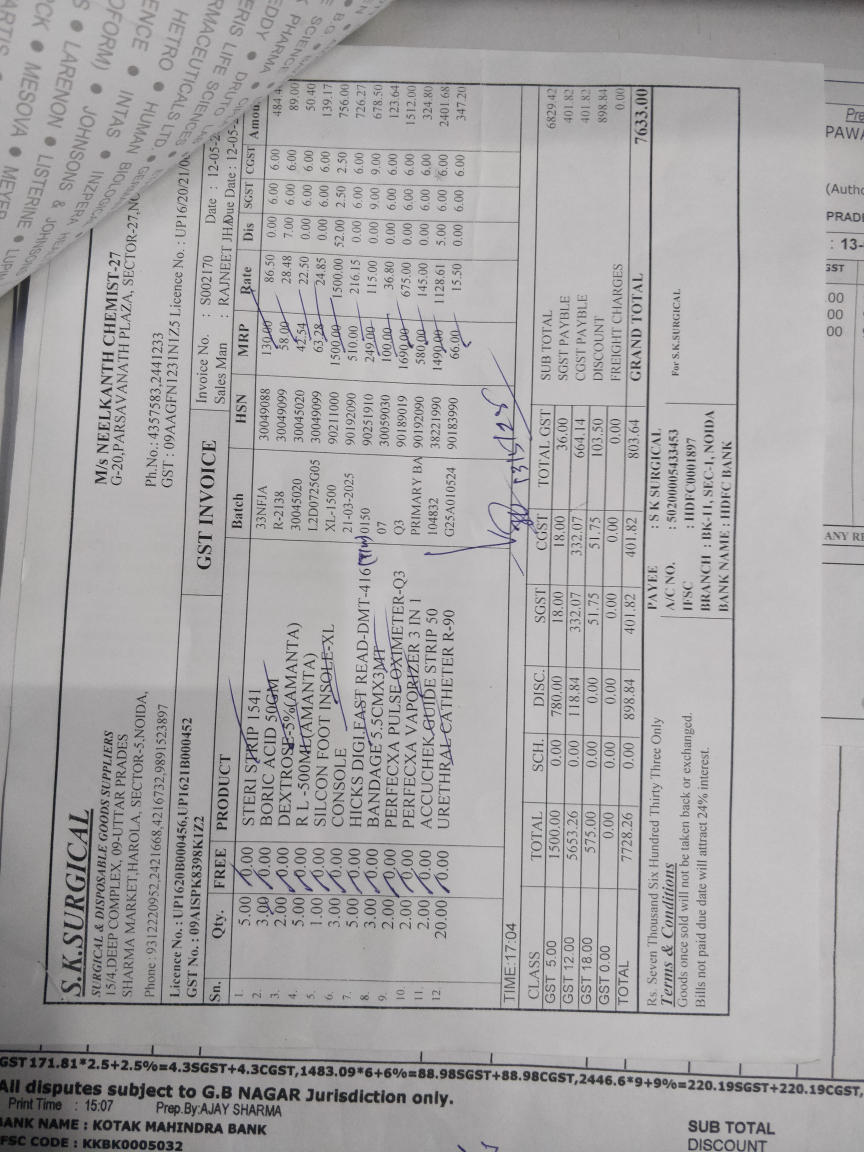 S.K.SURGICAL
SURGICAL & DISPOSABLE GOODS SUPPLIERS
15/4,DEEP COMPLEX, 09-UTTAR PRADES
SHARMA MARKET,HAROLA, SECTOR-5,NOIDA,
Phone : 9312220952,2421668,4216732,9891523897
M/s NEELKANTH CHEMIST-27
G-20,PARSAVANATH PLAZA, SECTOR-27,NO
Ph.No.: 4357583,2441233
GST : 09AAGFN1231N1Z5 Licence No. : UP16/20/21/0
Licence No. : UP1620B000456,UP1621B000452
GST No. : 09AISPK8398K1Z2
GST INVOICE
Invoice No. : S002170 Date : 12-05-2
Sales Man : RAJNEET JHA Due Date : 12-05-
Sn. Qty. FREE PRODUCT Batch HSN MRP Rate Dis SGST CGST Amou
1. 5.00 0.00 STERI STRIP 1541 33NFJA 30049088 130.00 86.50 0.00 6.00 6.00 484.4
2. 3.00 0.00 BORIC ACID 50GM R-2138 30049099 58.00 28.48 7.00 6.00 6.00 89.00
3. 2.00 0.00 DEXTROSE-5%(AMANTA) 30045020 30045020 42.54 22.50 0.00 6.00 6.00 50.40
4. 5.00 0.00 R L -500ML(AMANTA) L2D0725G05 30049099 63.28 24.85 0.00 6.00 6.00 139.17
5. 1.00 0.00 SILCON FOOT INSOLE-XL XL-1500 90211000 1500.00 1500.00 52.00 2.50 2.50 756.00
6. 3.00 0.00 CONSOLE 21-03-2025 90192090 510.00 216.15 0.00 6.00 6.00 726.27
7. 5.00 0.00 HICKS DIGI.FAST READ-DMT-416 0150 90251910 249.00 115.00 0.00 9.00 9.00 678.50
8. 3.00 0.00 BANDAGE 5.5CMX3MT 07 30059030 100.00 36.80 0.00 6.00 6.00 123.64
9. 2.00 0.00 PERFECXA PULSE OXIMETER-Q3 Q3 90189019 1690.00 675.00 0.00 6.00 6.00 1512.00
10. 2.00 0.00 PERFECXA VAPORIZER 3 IN 1 PRIMARY BA 90192090 580.00 145.00 0.00 6.00 6.00 324.80
11. 2.00 0.00 ACCUCHEK GUIDE STRIP 50 104832 38221990 1490.00 1128.61 5.00 6.00 6.00 2401.68
12 20.00 0.00 URETHRAL CATHETER R-90 G25A010524 90183990 66.00 15.50 0.00 6.00 6.00 347.20
TIME:17:04
CLASS TOTAL SCH. DISC. SGST CGST TOTAL GST
GST 5.00 1500.00 0.00 780.00 18.00 18.00 36.00
GST 12.00 5653.26 0.00 118.84 332.07 332.07 664.14
GST 18.00 575.00 0.00 0.00 51.75 51.75 103.50
GST 0.00 0.00 0.00 0.00 0.00 0.00 0.00
TOTAL 7728.26 0.00 898.84 401.82 401.82 803.64
SUB TOTAL 6829.42
SGST PAYBLE 401.82
CGST PAYBLE 401.82
DISCOUNT 898.84
FREIGHT CHARGES 0.00
GRAND TOTAL 7633.00
Rs. Seven Thousand Six Hundred Thirty Three Only
Terms & Conditions
Goods once sold will not be taken back or exchanged.
Bills not paid due date will attract 24% interest.
PAYEE : S K SURGICAL
A/C NO. : 50200005433453
IFSC : HDFC0001897
BRANCH : BK-11, SEC-1, NOIDA
BANK NAME : HDFC BANK
For S.K.SURGICAL
GST 171.81*2.5+2.5%=4.3SGST+4.3CGST,1483.09*6+6%=88.98SGST+88.98CGST,2446.6*9+9%=220.19SGST+220.19CGST,
All disputes subject to G.B NAGAR Jurisdiction only.
Print Time : 15:07 Prep.By:AJAY SHARMA
BANK NAME : KOTAK MAHINDRA BANK
FSC CODE : KKBK0005032
SUB TOTAL
DISCOUNT
Pre
PAWA
(Autho
PRADE
: 13-
GST
00
00
00
ANY RE